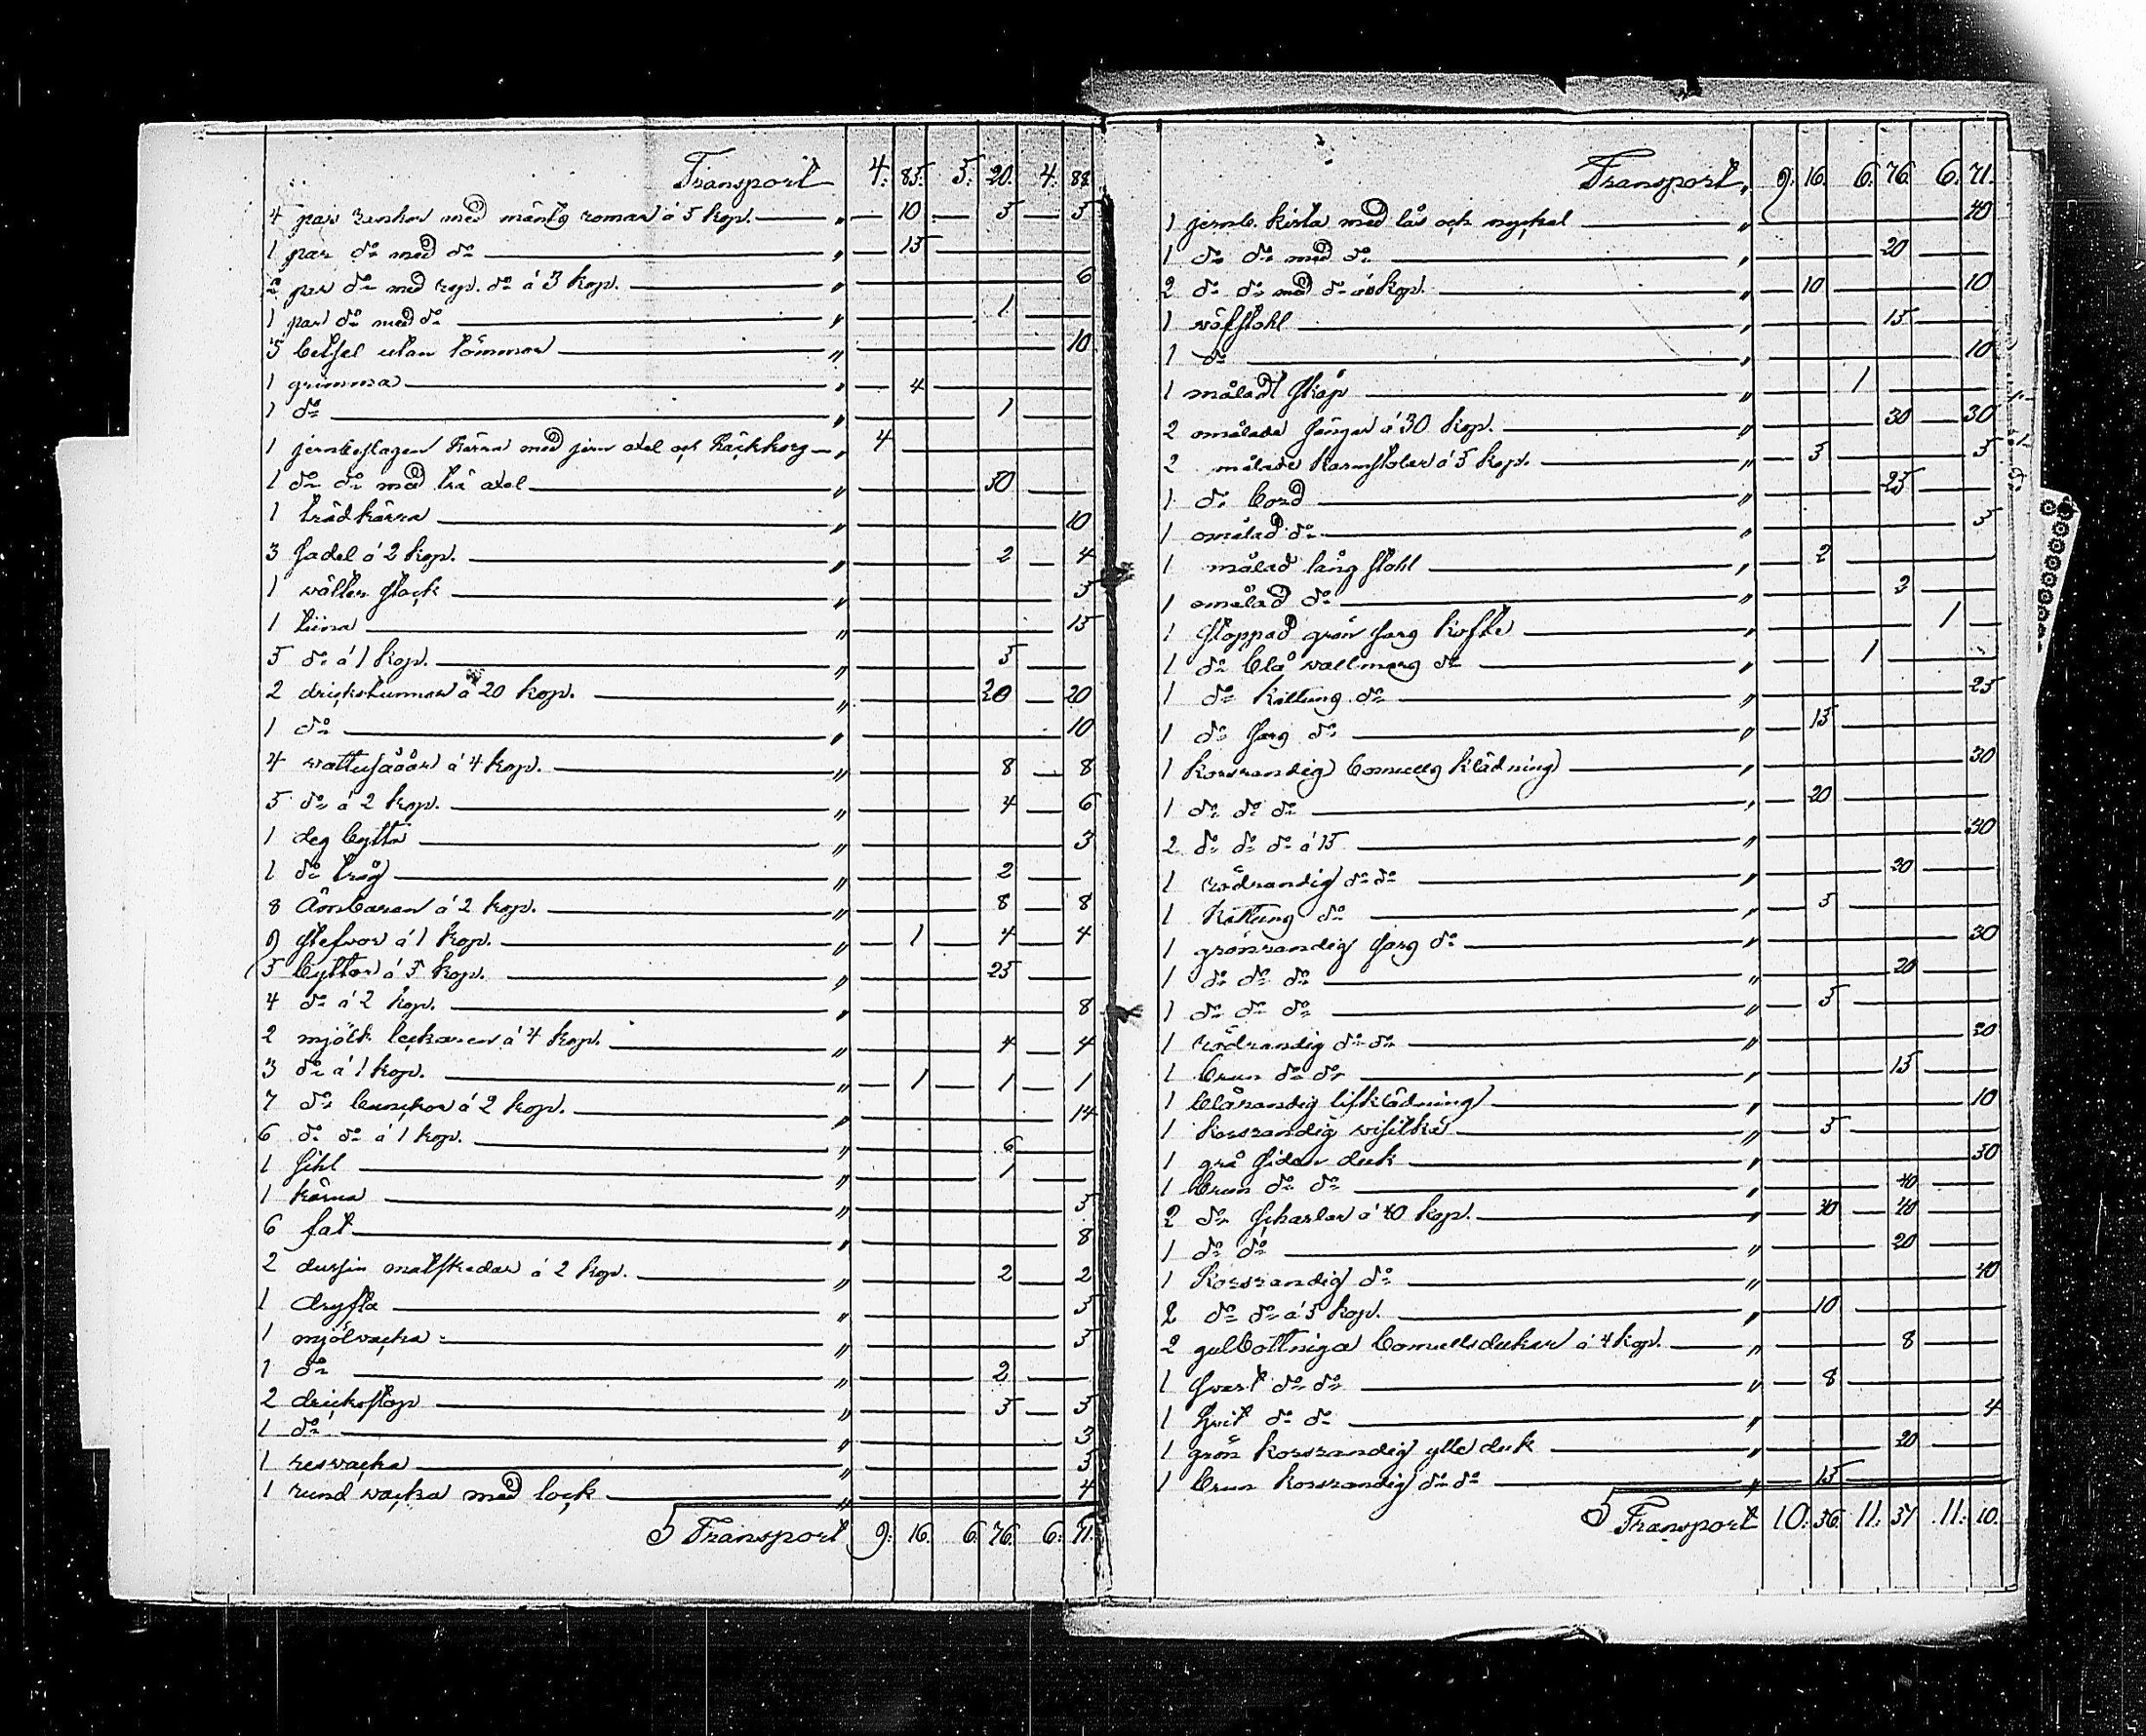 Transport 4: 85. 5. 20. 4. 88.
4 par med à 5 kop. " 10 5 5
1 par do med do " 15
2 par do med rep. do à 3 kop. " 6
1 par do med do " 1
5 betsel utan tömmar " 10
1 grimma " 4
1 do " 1
1 jernbeslagen kärra med jern axel och häckkorg " 4
1 do do med trä axel " 50
1 trädkärra " 10
3 sadel à 2 kop. " 2 4
1 välter stock " 5
1 tiina " 15
5 do à 1 kop. " 5
2 drickstunnor à 20 kop. " 20 20
1 do " 10
4 vattusååar à 4 kop. " 8 8
5 do à 2 kop. " 4 6
1 deg bytta " 3
1 do tråg " 2
8 Ämbaren à 2 kop. " 8 8
9 stefvor à 1 kop. " 1 4 4
5 byttor à 5 kop. " 25
4 do à 2 kop. " 8
2 mjölk leckaren à 4 kop. " 4 4
3 do à 1 kop. " 1 1 1
7 do bunckor à 2 kop. " 14
6 do do à 1 kop. " 6
1 sihl " 1
1 kärna " 5
6 fat " 8
2 dussin matskedar à 2 kop. " 2 2
1 dryfta " 5
1 mjölvacka " 5
1 do " 2
2 dricksstop " 5 5
1 do " 3
1 resvacka " 5
1 rund vacka med lock " 4
S Transport 9: 16. 6. 76. 6: 71.
Transport, 9: 16. 6: 76. 6. 71.
1 jernb. kista med lås och nyckel " 40
1 do do med do " 20
2 do do med do à kop. " 10 10
1 väfstohl " 15
1 do " 10
1 måladt skåp " 1
2 omålade sängar à 30 kop. " 30 30
2 målade karmstolar à 5 kop. " 5 5
1 do bord " 25
1 omålad do " 5
1 målad lång stohl " 2
1 omålad do " 3
1 stoppad grön sarg kofte " 1
1 do blå vallmarg do " 1
1 do kattung do " 25
1 do sarg do " 15
1 korsrandig bomullg klädning " 30
1 do do do " 20
2 do do do à 15 " 30
1 rödrandig do do " 20
1 kattung do " 5
1 grönrandig sarg do " 30
1 do do do " 20
1 do do do " 5
1 rödrandig do do " 30
1 brun do do " 15
1 blårandig lifklädning " 10
1 korsrandig visitka " 5
1 grå siden duk " 50
1 brun do do " 40
2 do scharlar à 40 kop. " 40 40
1 do do " 20
1 korsrandig do " 40
2 do do à 5 kop. " 10
2 gulbottniga bomullsdukar à 4 kop. " 8
1 svart do do " 8
1 hvit do do " 4
1 grön korsrandig ylle duk " 20
1 brun korsrandig do do " 15
S Transport 10: 36. 11. 37 11: 10.